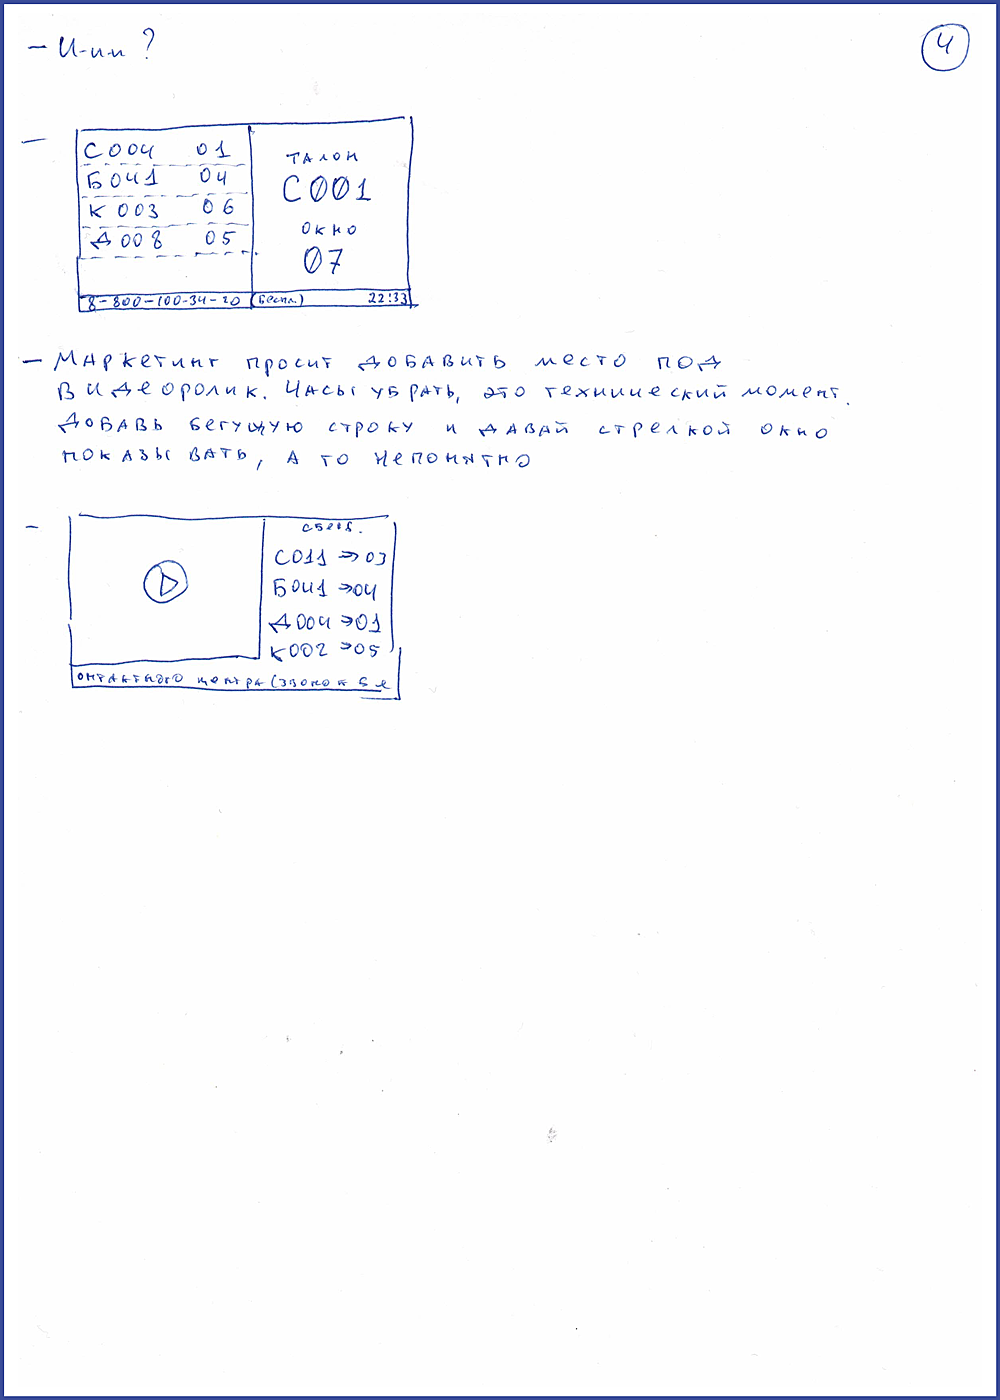 - И-и-и ?
4
С004 01
Б041 04
К 003 06
Д008 05
ТАЛОН
С001
ОКНО
07
8-800-100-34-20 (Беспл.) 22:33
- Маркетинг просит добавить место под
видеоролик. Часы убрать, это технический момент.
Добавь бегущую строку и давай стрелкой окно
показывать, а то непонятно
С011 → 03
Б041 → 04
Д004 → 01
К002 → 05
онтактного центра (звонок бе